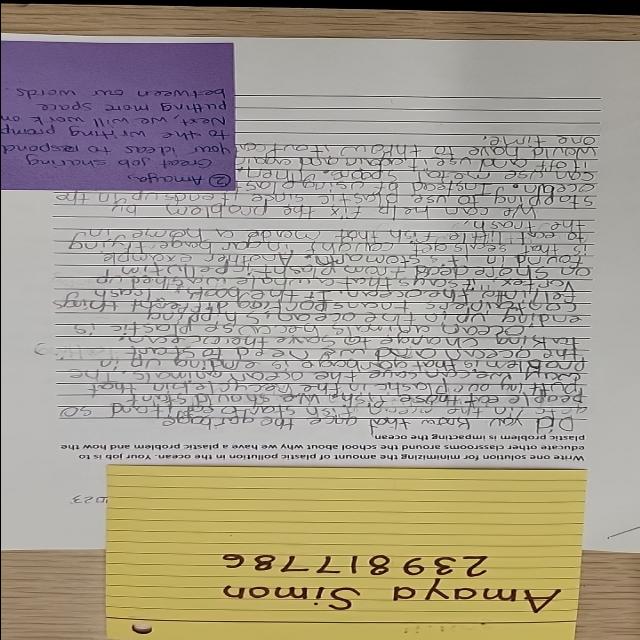 Amaya Simon
239817786
2023
Write one solution for minimizing the amount of plastic pollution in the ocean. Your job is to
educate other classrooms around the school about why we have a plastic problem and how the
plastic problem is impacting the ocean.
Did you know that once the garbage
gets in the ocean fish start to eat it and so
people eat those fish. We should start
putting our plastic in the recycle bin that
way we can save the ocean animals. The
problem is that garbage is ending up in
the ocean and we need to start
taking change to save there ecan.
Ocean animals because plastic is
ending up in the ocean is shipping
containers transporting different things
fell into the ocean. In the book Trash
Vortex, it says that a whale washed up
on shore dead from plastic pellution
found in it's stomach. Another example
is that seals get caught in garbage trying
to eat little fish that made a home in
the trash.
We can help fix the problem by
stopping to use plastic since it ends up in the
ocean. Instead of using plastic
can use metal spoon. Then
it off and use it again and again
would have to throw it out
one time.
② Amaya,
Great job sharing
your ideas to respond
to the writing prompt
Next, we will work on
putting more space
between our words.